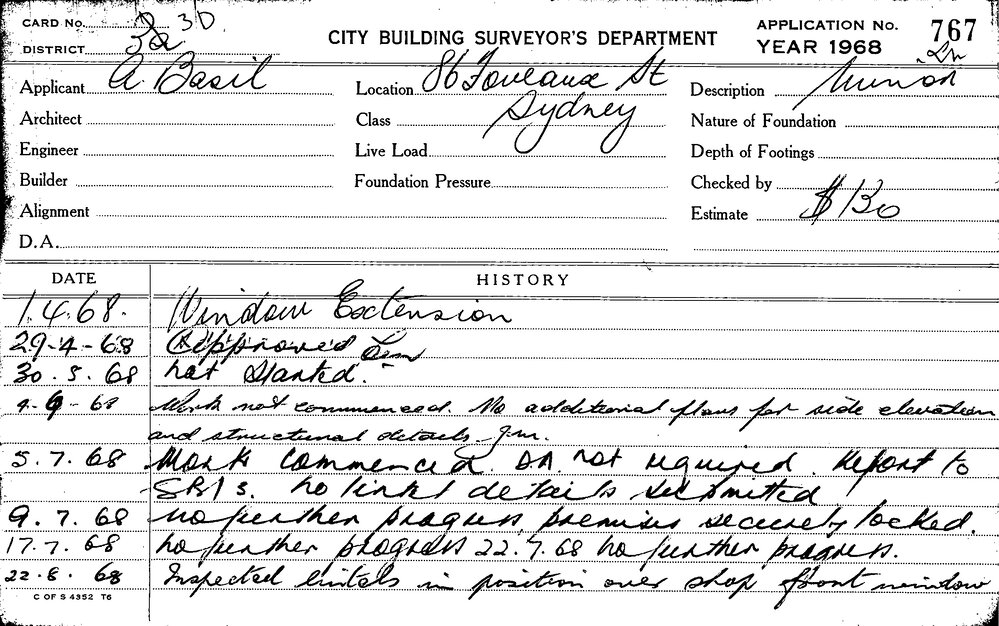 CARD No. 3D
DISTRICT 3a
CITY BUILDING SURVEYOR'S DEPARTMENT
APPLICATION No. 767
YEAR 1968
Applicant A Basil
Location 86 Foveaux St
Sydney
Description Minor
Architect
Class
Nature of Foundation
Engineer
Live Load
Depth of Footings
Builder
Foundation Pressure
Checked by
Alignment
Estimate $130
D.A.
DATE HISTORY
1.4.68. Window Extension
29-4-68 Approved
30.5.68 Not Started.
4-6-68 Work not commenced. No additional plans for side elevation
and structural details J.M.
5.7.68 Work commenced. DA not required. Report to
no lintel details submitted
9.7.68 no further progress, premises securely locked.
17.7.68 no further progress 22.7.68 no further progress.
22.8.68 Inspected lintels in position over shop front window
C OF S 4352 T6